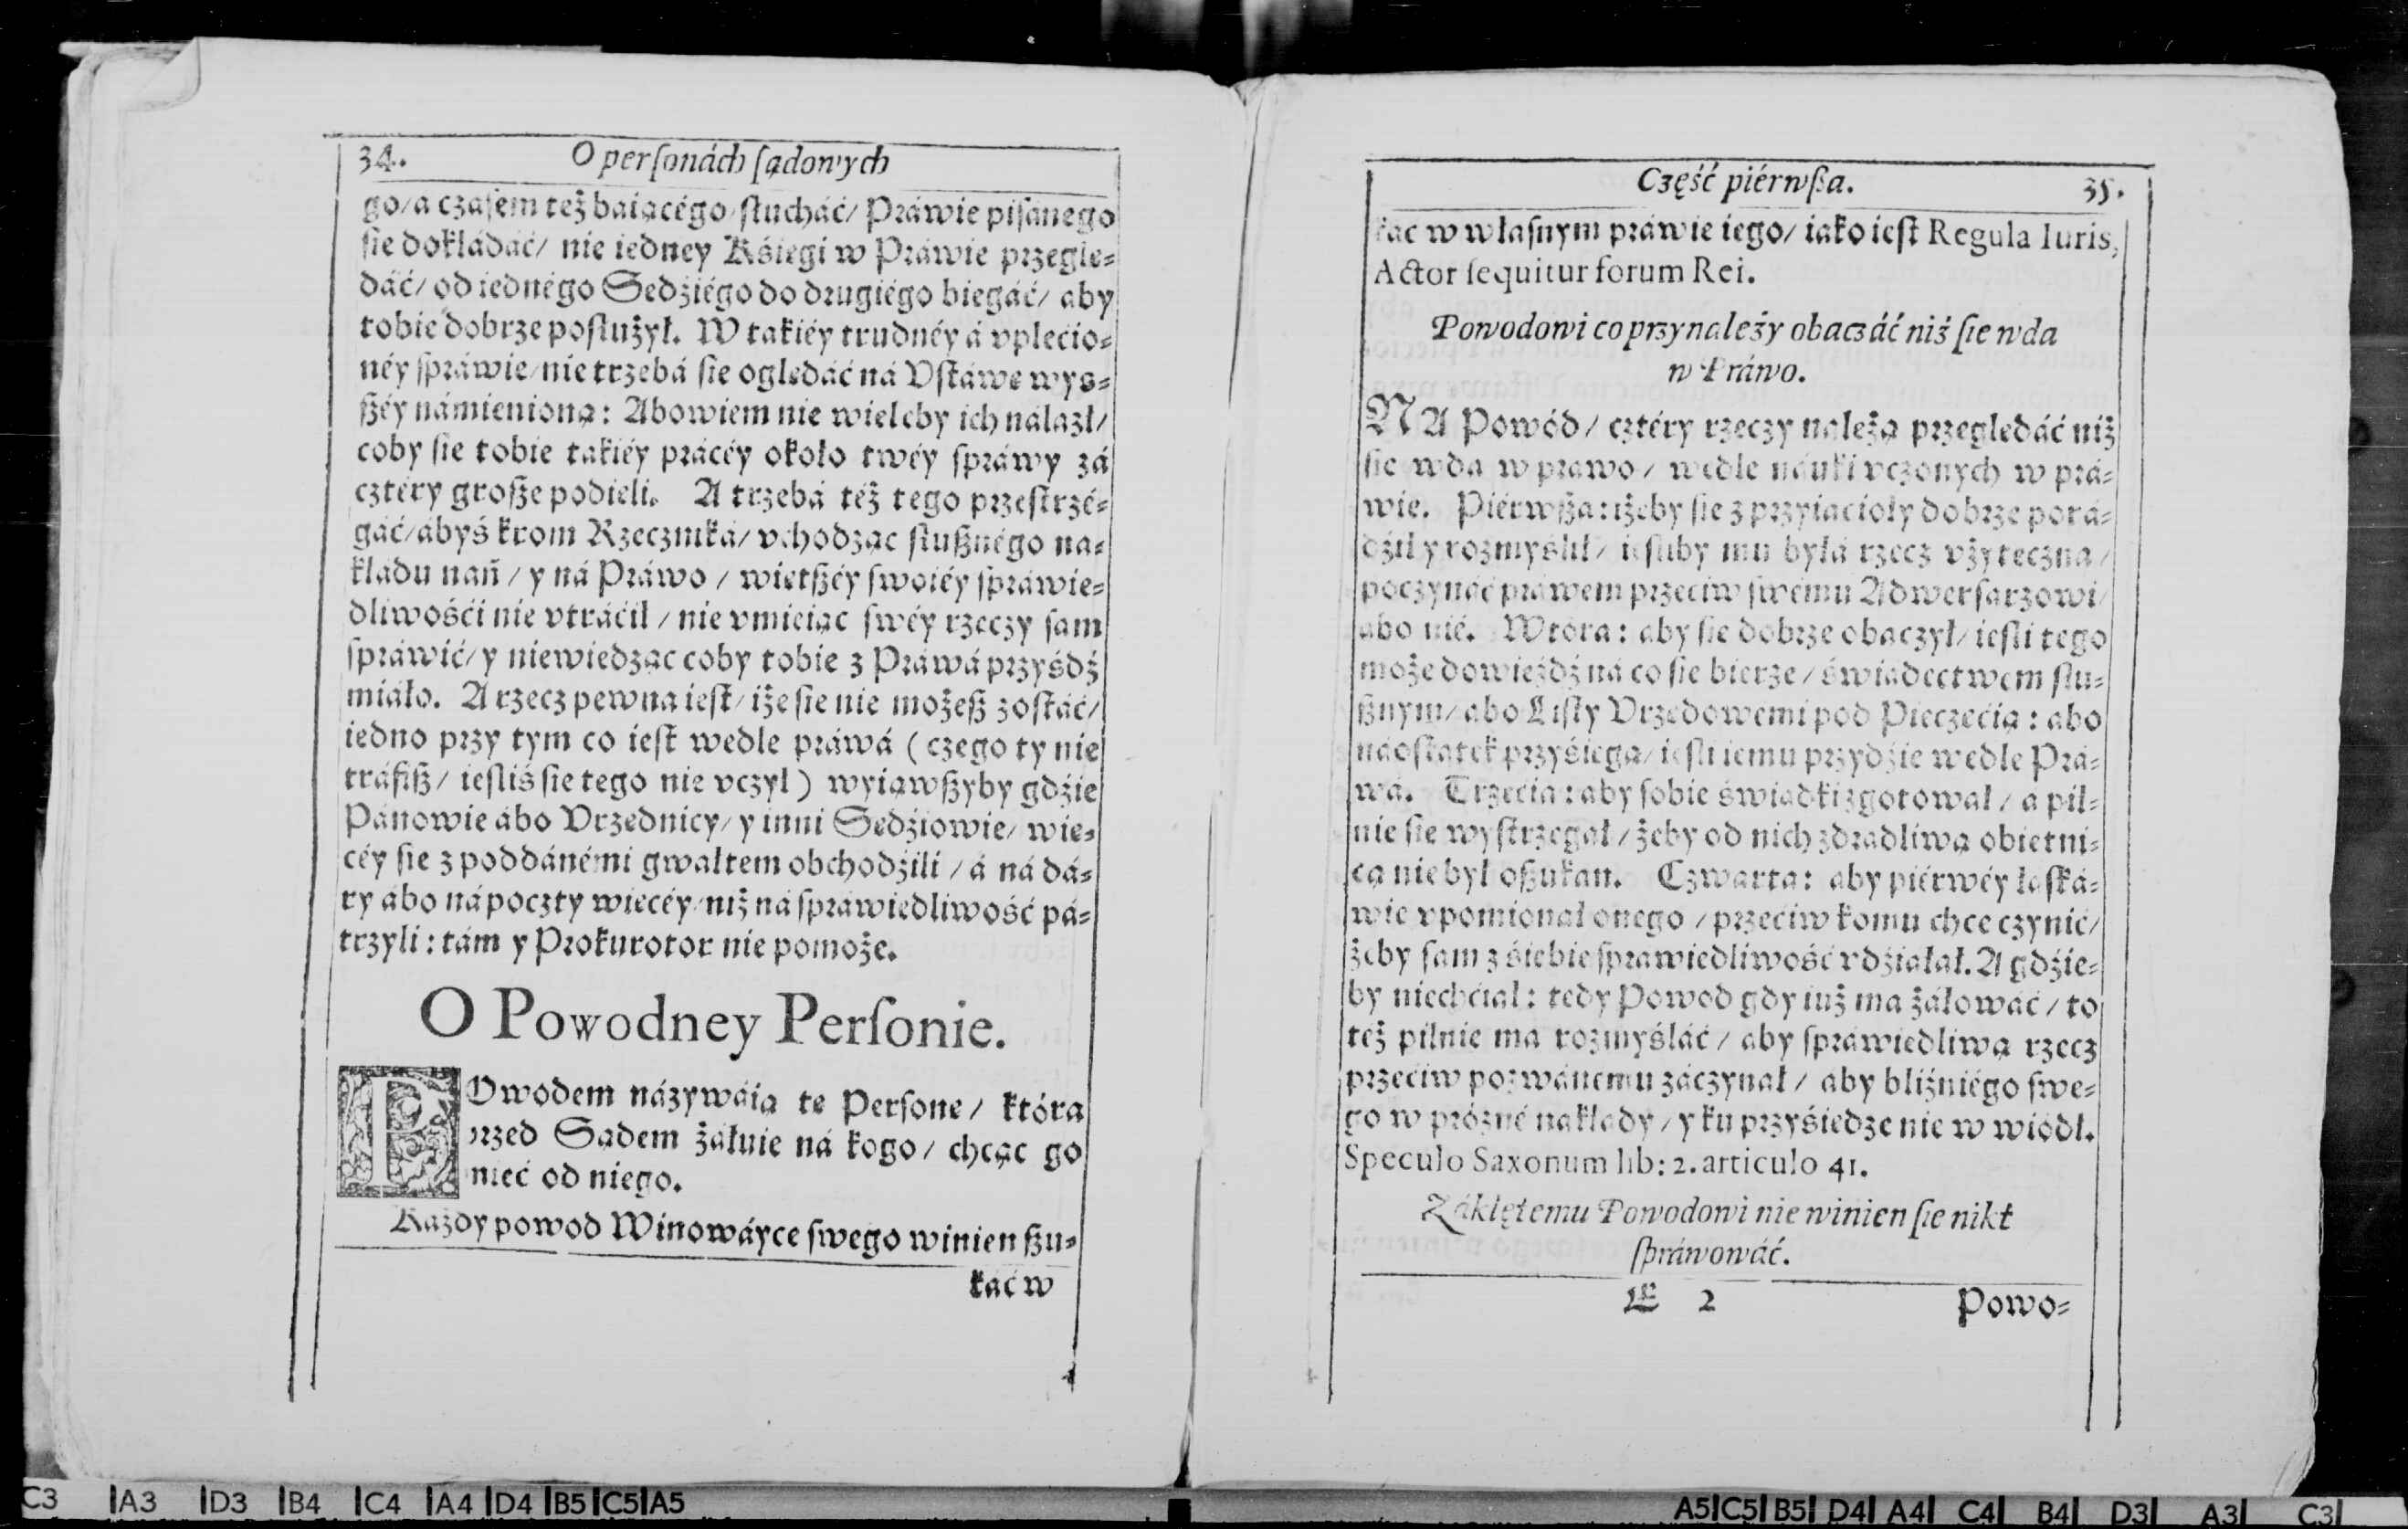 34. O perſonách ſądowych
go/ a czaſem też baiącégo/ ſłucháć/ Práwie piſánego
ſie dokłádáć/ nie iedney Kśięgi w Práwie przeglę⸗
dáć/ od iednégo Sędźiégo do drugiégo biegáć/ aby
tobie dobrze poſłużył. W takiéy trudnéy á vplecio⸗
néy ſpráwie/ nie trzebá ſie oględáć ná Vſtáwę wyſ⸗
ßéy námienioną: Abowiem nie wieleby ich nálazł/
coby ſie tobie takiéy prácéy około twéy ſpráwy zá
cztéry große podięli. A trzebá téż tego przeſtrzé⸗
gáć/ ábyś krom Rzeczniká/ vchodząc ſłußnégo na⸗
kłádu nań / y ná Práwo / więtßéy ſwoiéy ſpráwie⸗
dliwośći nie vtráćił / nie vmieiąc ſwéy rzeczy ſam
ſpráwić/ y niewiedząc coby tobie z Práwá przyśdź
miáło. A rzecz pewna ieſt/ iże ſie nie możeß zoſtáć/
iedno przy tym co ieſt wedle práwá (czego ty nie
tráfiß/ ieſliś ſie tego nie vczył) wyiąwßyby gdźie
Pánowie ábo Vrzędnicy/ y inni Sędźiowie/ wię⸗
céy ſie z poddánémi gwałtem obchodźili / á ná dá⸗
ry ábo ná poczty więcéy/ niż ná ſpráwiedliwość pá⸗
trzyli: tám y Prokurotor nie pomoże.
O Powodney Perſonie.
POwodem názywáią tę Perſonę/ która
przed Sądem żáłuie ná kogo/ chcąc go
mieć od niego.
Każdy powod Winowáycę ſwego winien ßu⸗
káć w
Część piérwßa. 35.
káć w właſnym práwie iego/ iáko ieſt Regula Iuris,
Actor ſequitur forum Rei.
Powodowi co przynależy obaczáć niż ſie wda
w Práwo.
NA Powód/ cztéry rzeczy należą przeględáć niż
ſie wda w prawo/ wedle náuki vczonych w prá⸗
wie. Piérwßa: iżeby ſie z przyiacioły dobrze porá⸗
dźił y rozmyślił/ ieſliby mu była rzecz vżyteczna/
poczynáć práwem przećiw ſwému Adwerſarzowi/
abo nié. Wtóra: aby ſie dobrze obaczył/ ieſli tego
może dowieźdź ná co ſie bierze/ świádectwem ſłu⸗
ßnym/ abo Liſty Vrzędowemi pod Pieczęcią: abo
náoſtatek przyśięgą/ ieſli iemu przydźie wedle Prá⸗
wá. Trzecia: aby ſobie świadki zgotował/ á pil⸗
nie ſie wyſtrzegał/ żeby od nich zdradliwą obietni⸗
cą nie był oßukan. Czwarta: aby piérwéy łaſká⸗
wie vpomionał onego / przećiw komu chce czynić/
żeby ſam z śiebie ſprawiedliwość vdźiałał. A gdźie⸗
by niechćiał: tedy Powod gdy iuż ma żáłowáć/ to
też pilnie ma rozmyśláć/ aby ſpráwiedliwą rzecz
przećiw pozwánemu záczynał/ aby bliźniégo ſwe⸗
go w prózné nakłady/ y ku przyśiędze nie w wiódł.
Speculo Saxonum lib: 2. articulo 41.
Záklętemu Powodowi nie winien ſie nikt
ſpráwowáć.
E 2 Powo⸗